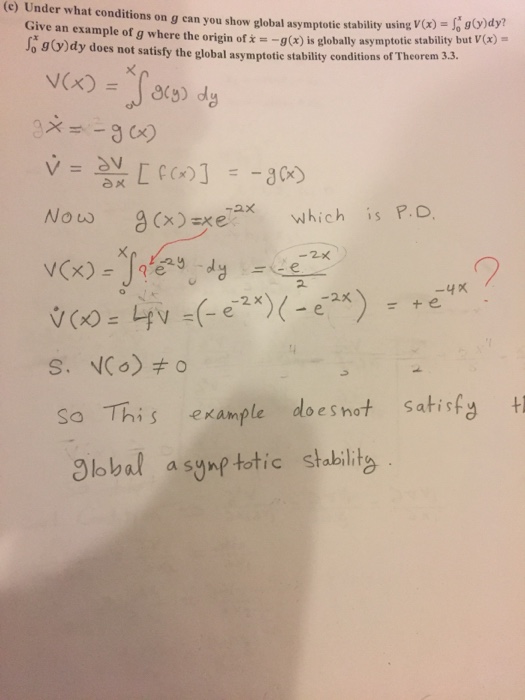 (c) Under what conditions on g can you show global asymptotic stability using V(x) = ∫₀ˣ g(y)dy?
Give an example of g where the origin of ẋ = −g(x) is globally asymptotic stability but V(x) =
∫₀ˣ g(y)dy does not satisfy the global asymptotic stability conditions of Theorem 3.3.
V(x) = ∫₀ˣ g(y) dy
ẋ = −g(x)
V̇ = ∂V/∂x [f(x)] = −g(x)
Now g(x) = xe^-2x which is P.D.
V(x) = ∫₀ˣ ? e^-2y dy = -e^-2x / 2
V̇(x) = LfV = (−e^-2x)(−e^-2x) = +e^-4x ?
S. V(0) ≠ 0
so This example doesnot satisfy
global asymptotic stability.